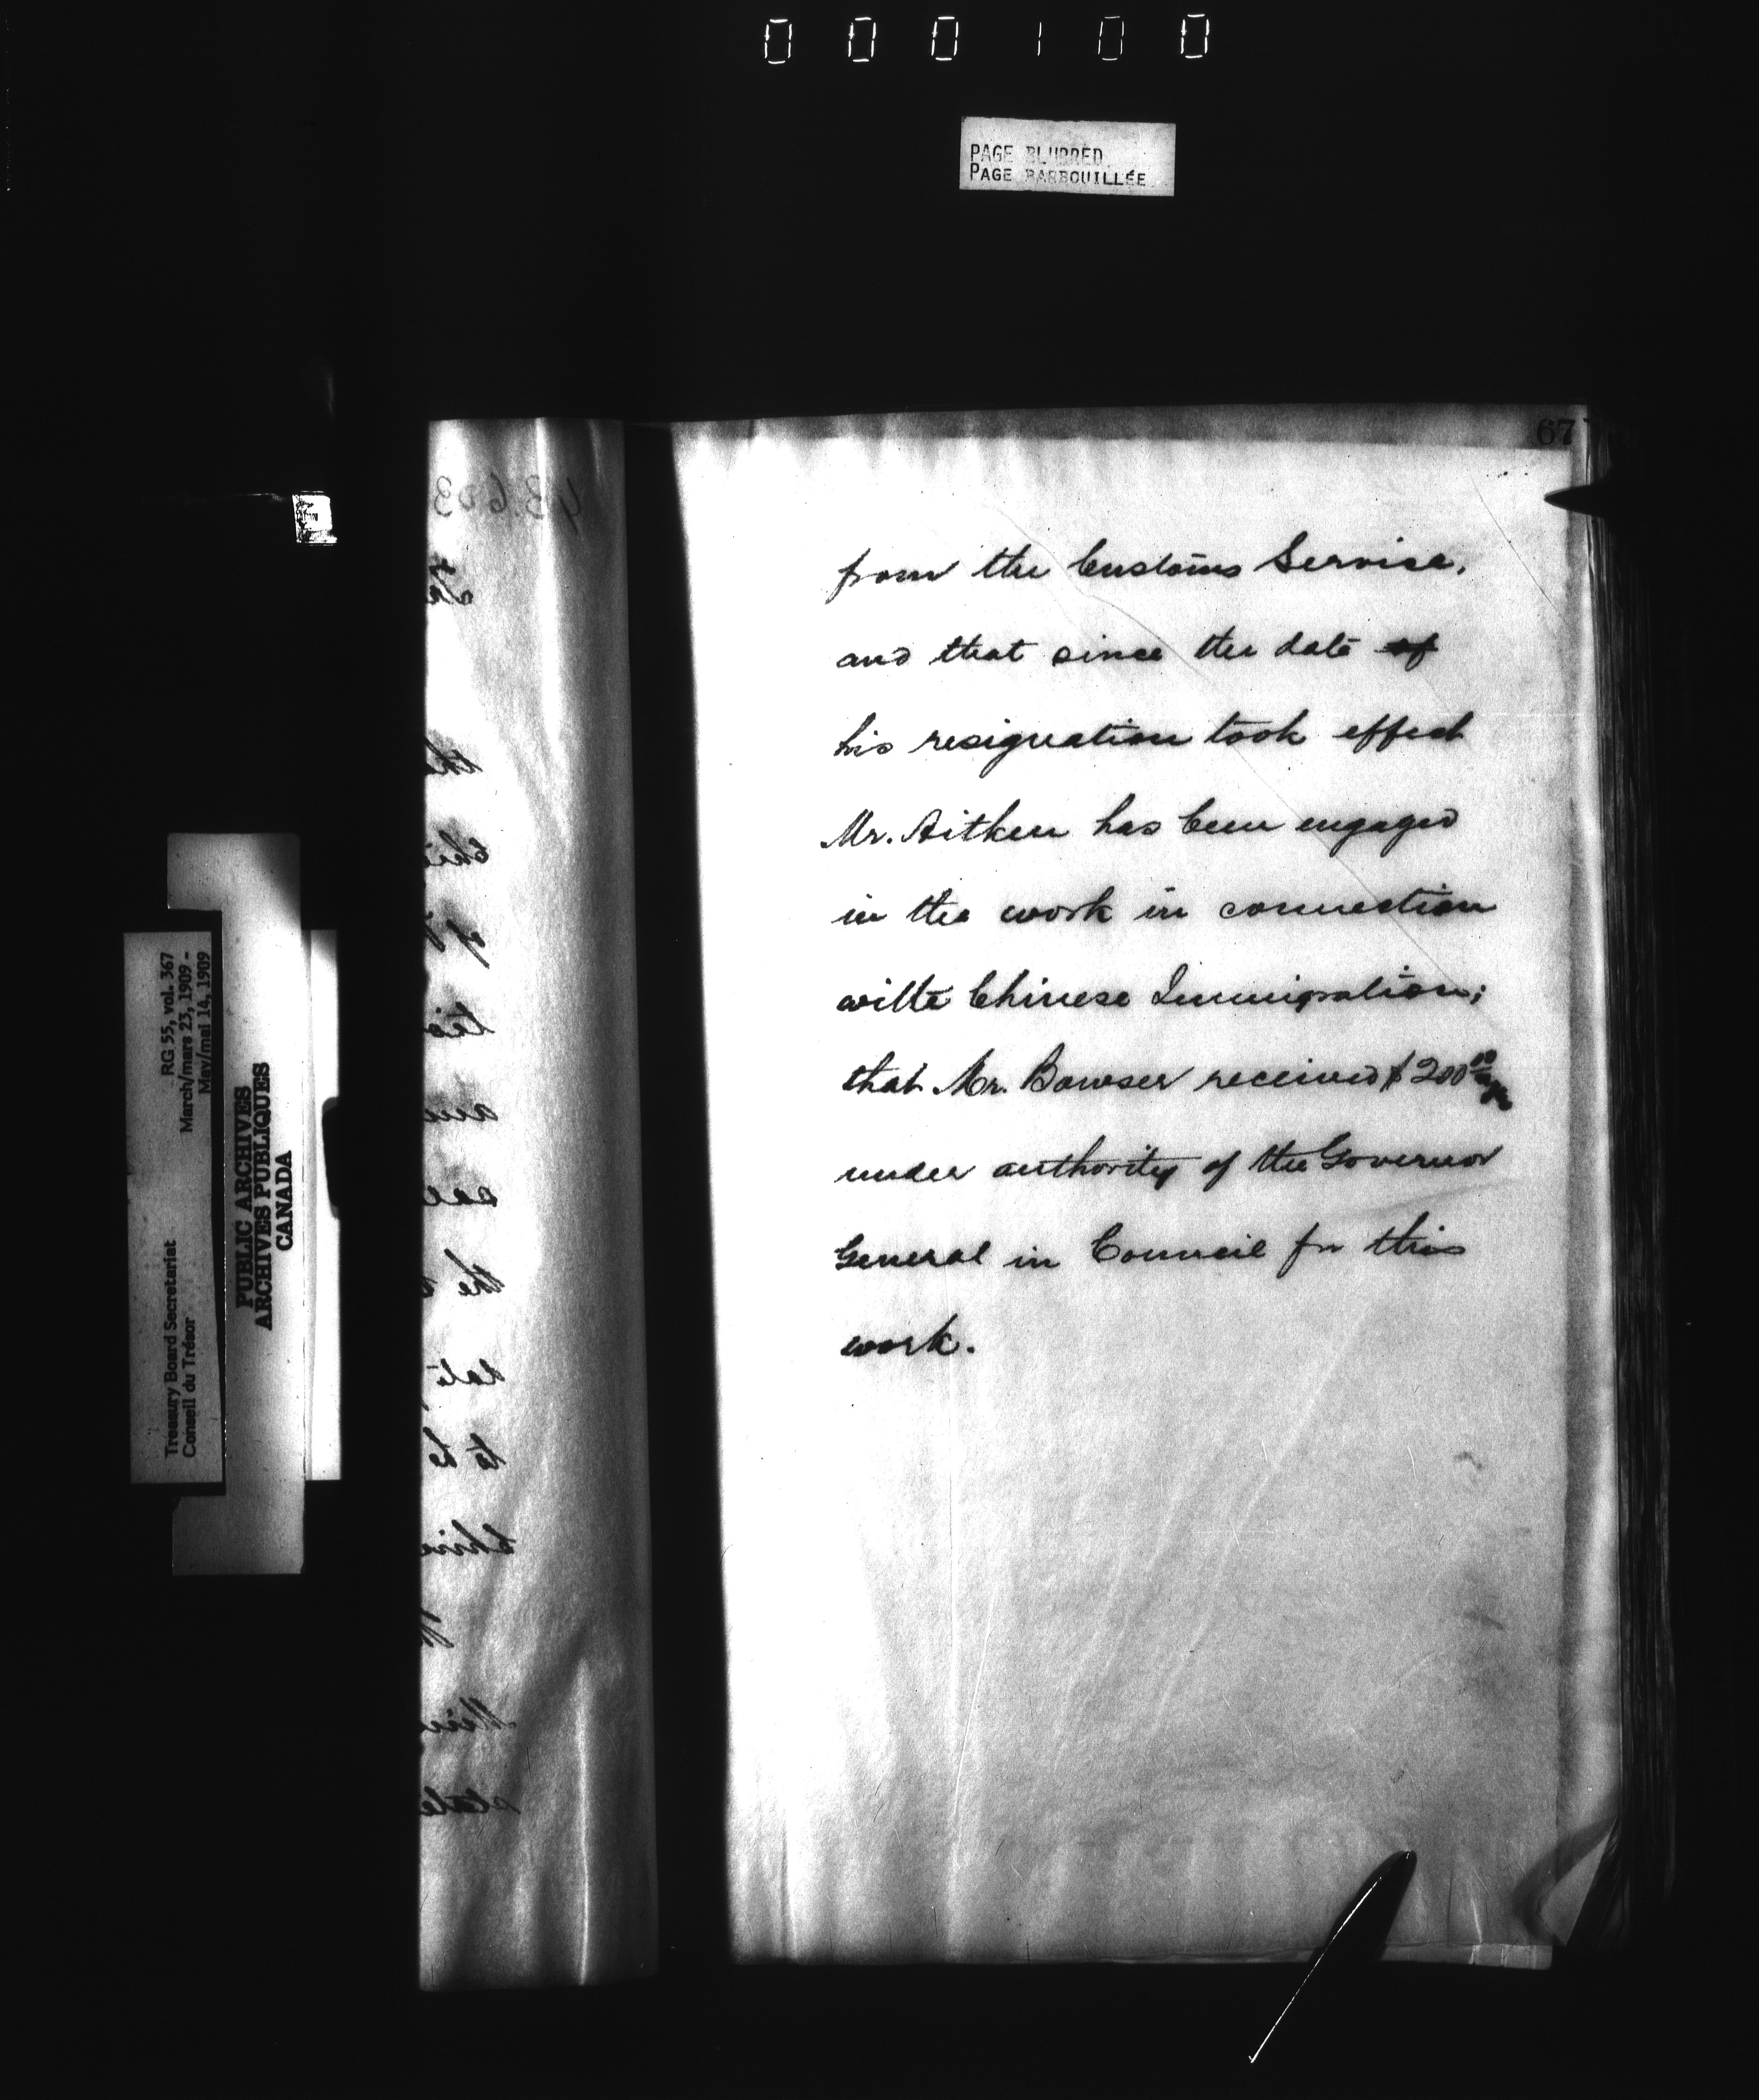 000100
PAGE BLURRED
PAGE BARBOUILLÉE
67
from the Customs Service,
and that since the date of
his resignation took effect
Mr. Aitken has been engaged
in the work in connection
with Chinese Immigration;
that Mr. Bowser received $200
under authority of the Governor
General in Council for this
work.
Treasury Board Secretariat RG 55, vol. 367
Conseil du Trésor March/mars 23, 1909 -
May/mai 14, 1909
PUBLIC ARCHIVES
ARCHIVES PUBLIQUES
CANADA